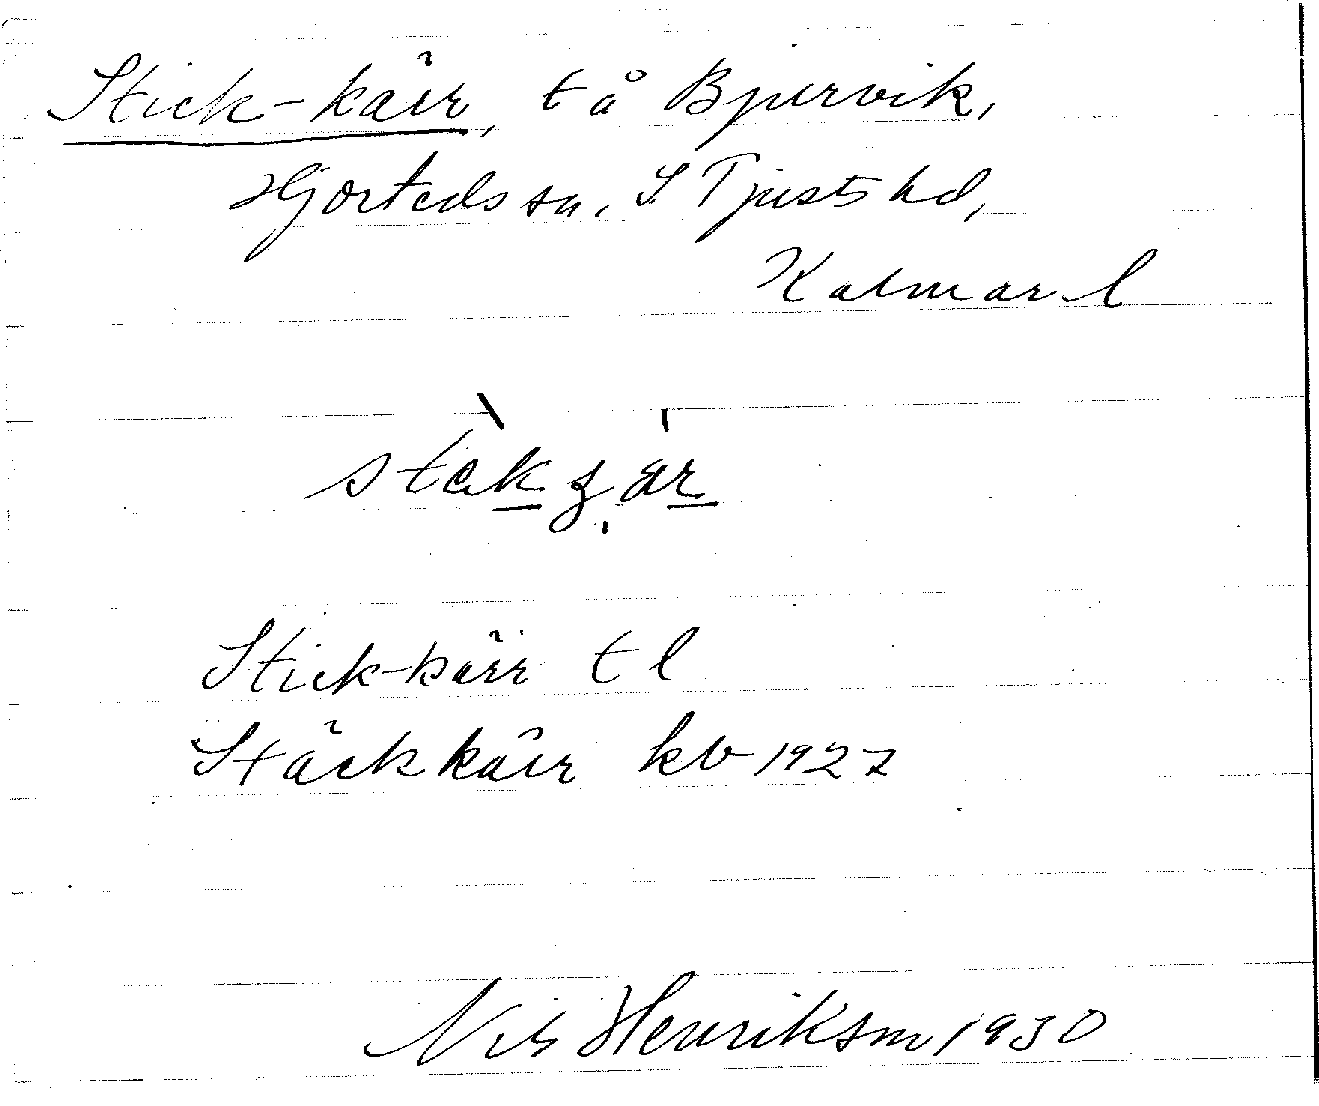 Stick-kärr, t å Bjurvik,
Hjorteds sn, S Tjusts hd,
Kalmar l
Stick-kärr t l
Stäck kärr kb 1927
Nils Henriksson 1930